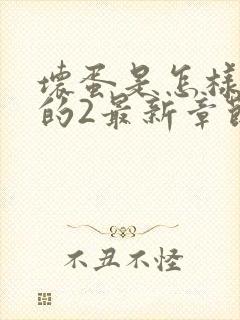 壞蛋是怎樣
的2最新章節
不丑不怪